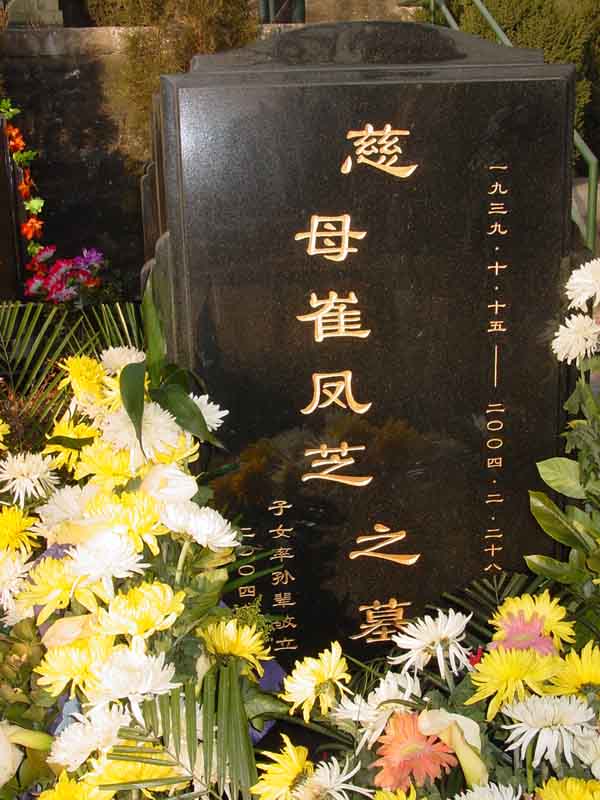 一九三九·十·十五——二〇〇四·二·二十八
慈母崔凤芝之墓
子女率孙辈敬立
二〇〇四